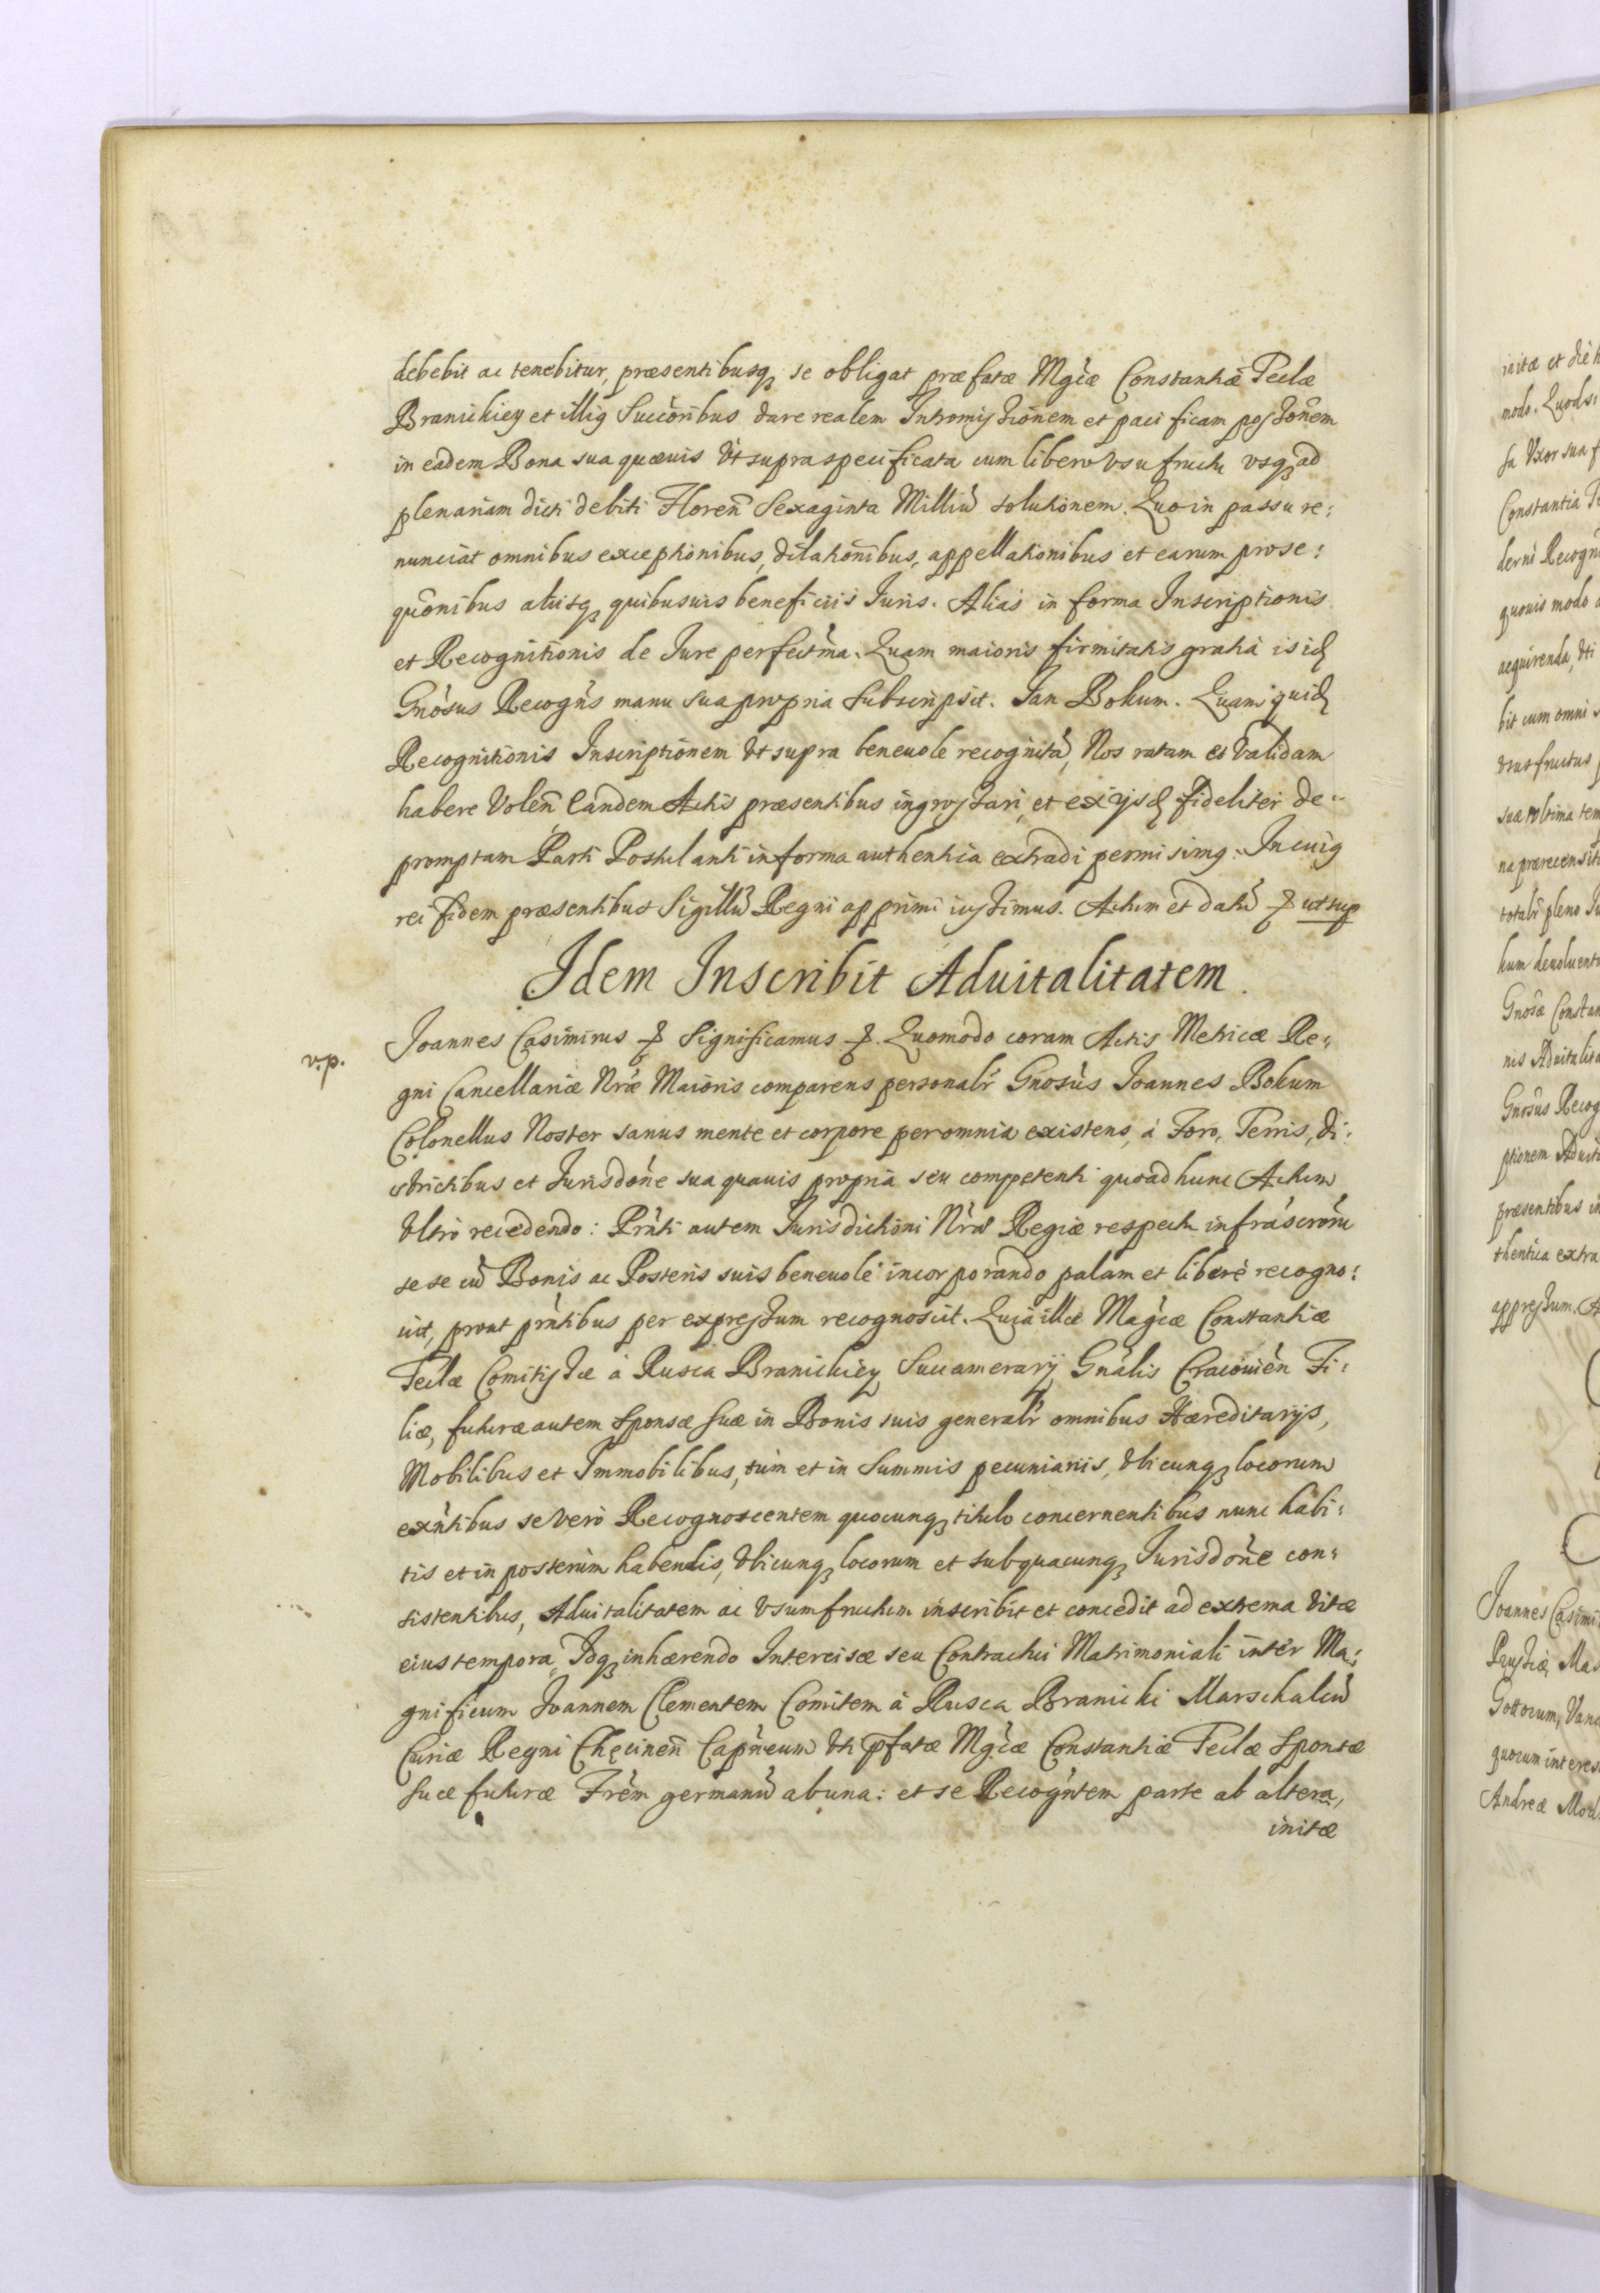 debebit ac tenebitur, præsentibusq se obligat præfatæ Mgcæ Constantiæ Teclæ
Branickiey et illiq Succoribus dare realem Intromissionem et pacificam possionem
in eadem Bona sua quævis Vt supra specificata cum libero Vsufructu vsq ad
plenariam dicti debiti Floren Sexaginta Milliu solutionem. Quo in passu re:
nunciat omnibus exceptionibus, dilationibus, appellationibus et earum prose:
quonibus aliisq quibusuis beneficiis Iuris. Alias in forma Inscriptionis
et Recognitionis de Iure perfectma. Quam maioris firmitatis gratia is id
Gnosus Recogns manu sua propria Subscripsit. Jan Bokum. Quam quid
Recognitionis Inscriptionem Vt supra beneuole recognita, Nos ratam et Validam
habere Volen Eandem Actis præsentibus ingrossari, et ex ijsd fideliter de:
promptam Parti Postulanti in forma authentica extradi permisimq. In cuiq
rei fidem præsentibus Sigillu Regni apprimi iussimus. Actum et datu & ut sup
Idem Inscribit Aduitalitatem.
v.p.
Joannes Casimirus & Significamus & Quomodo coram Actis Metricæ Re:
gni Cancellariæ Nræ Maioris comparens personalr Gnosus Joannes Bokum
Colonellus Noster sanus mente et corpore per omnia existens, á Foro, Terris, Di:
strictibus et Iurisdone sua quauis propria seu competenti quoad hunc Actum
Vltro recedendo: Prnti autem Iurisdictioni Nræ Regiæ respectu infrascroru
se se cu Bonis ac Posteris suis beneuole incorporando palam et libere recogno:
uit, prout prntibus per expressum recognoscit. Quia ille Magcæ Constantiæ
Teclæ Comitissæ á Rusca Branickiey Succamerarij Gnalis Cracouien Fi:
liæ, futuræ autem Sponsæ suæ in Bonis suis generalr omnibus Hæreditarijs,
Mobilibus et Immobilibus, tum et in Summis pecuniariis, Vbicunq locorum
exntibus se vero Recognoscentem quocunq titulo concernentibus nunc habi:
tis et in posterum habendis, Vbicunq locorum et sub quacunq Iurisdone con:
sistentibus, Aduitalitatem ac Vsumfructum inscribit et concedit ad extrema Vitæ
eius tempora. Idq inhærendo Intercisæ seu Contractui Matrimoniali inter Ma:
gnificum Joannem Clementem Comitem á Rusca Branicki Marschalcu
Curiæ Regni Chęcinen Capneum Vti pfatæ Mgcæ Constantiæ Teclæ Sponsæ
suæ futuræ Frem germanu ab una: et se Recogntem parte ab altera,
initæ